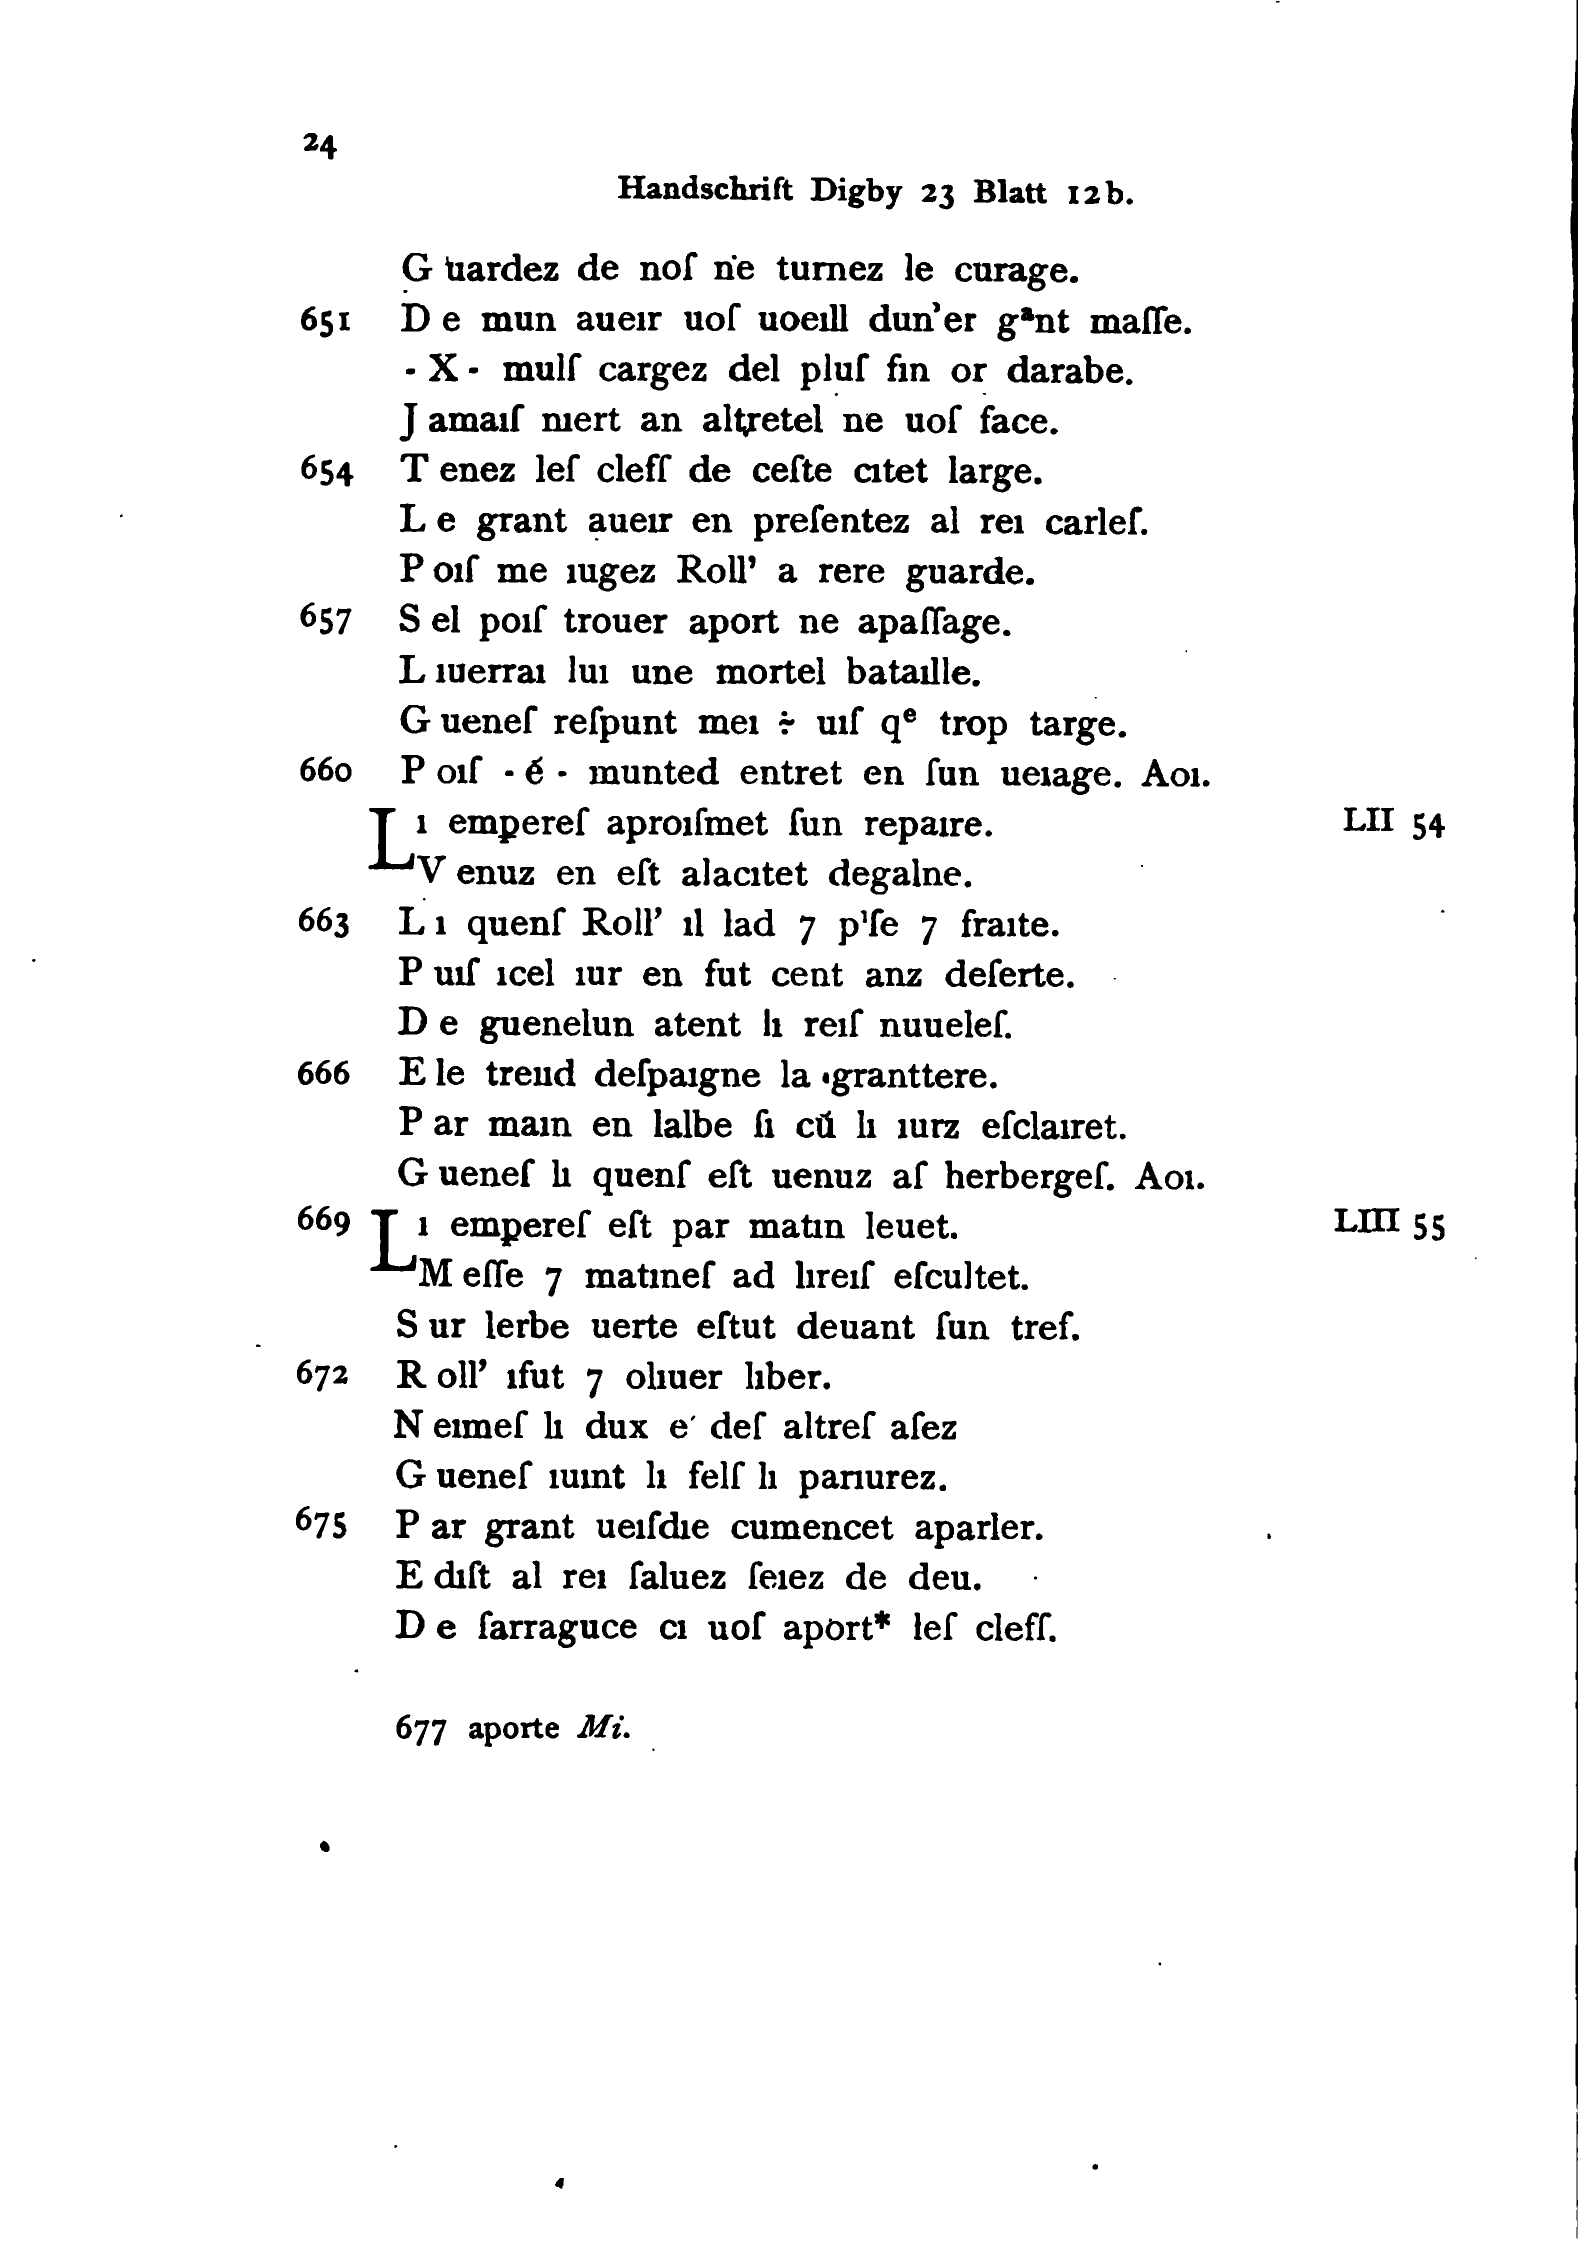 24
Handschrift Digby 23 Blatt 12b.
G uardez de noſ ne turnez le curage.
651 D e mun aueır uoſ uoeıll dun’er gᵃnt maſſe.
- X - mulſ cargez del pluſ fın or darabe.
J amaıſ nıert an altretel ne uoſ face.
654 T enez leſ cleſſ de ceſte cıtet large.
L e grant aueır en preſentez al reı carleſ.
P oıſ me ıugez Roll’ a rere guarde.
657 S el poıſ trouer aport ne apaſſage.
L ıuerraı luı une mortel bataılle.
G ueneſ reſpunt meı ÷ uıſ qᵉ trop targe.
660 P oıſ - é - munted entret en ſun ueıage. Aoı.
L ı empereſ aproıſmet ſun repaıre. LII 54
V enuz en eſt alacıtet degalne.
663 L ı quenſ Roll’ ıl lad 7 pıſe 7 fraıte.
P uıſ ıcel ıur en fut cent anz deſerte.
D e guenelun atent lı reıſ nuueleſ.
666 E le treud deſpaıgne la granttere.
P ar maın en lalbe ſı cű lı ıurz eſclaıret.
G ueneſ lı quenſ eſt uenuz aſ herbergeſ. Aoı.
669 L ı empereſ eſt par matın leuet. LIII 55
M eſſe 7 matıneſ ad lıreıſ eſcultet.
S ur lerbe uerte eſtut deuant ſun tref.
672 R oll’ ıfut 7 olıuer lıber.
N eımeſ lı dux e´ deſ altreſ aſez
G ueneſ ıuınt lı felſ lı parıurez.
675 P ar grant ueıſdıe cumencet aparler.
E dıſt al reı ſaluez ſeıez de deu.
D e ſarraguce cı uoſ aport* leſ cleſſ.
677 aporte Mi.